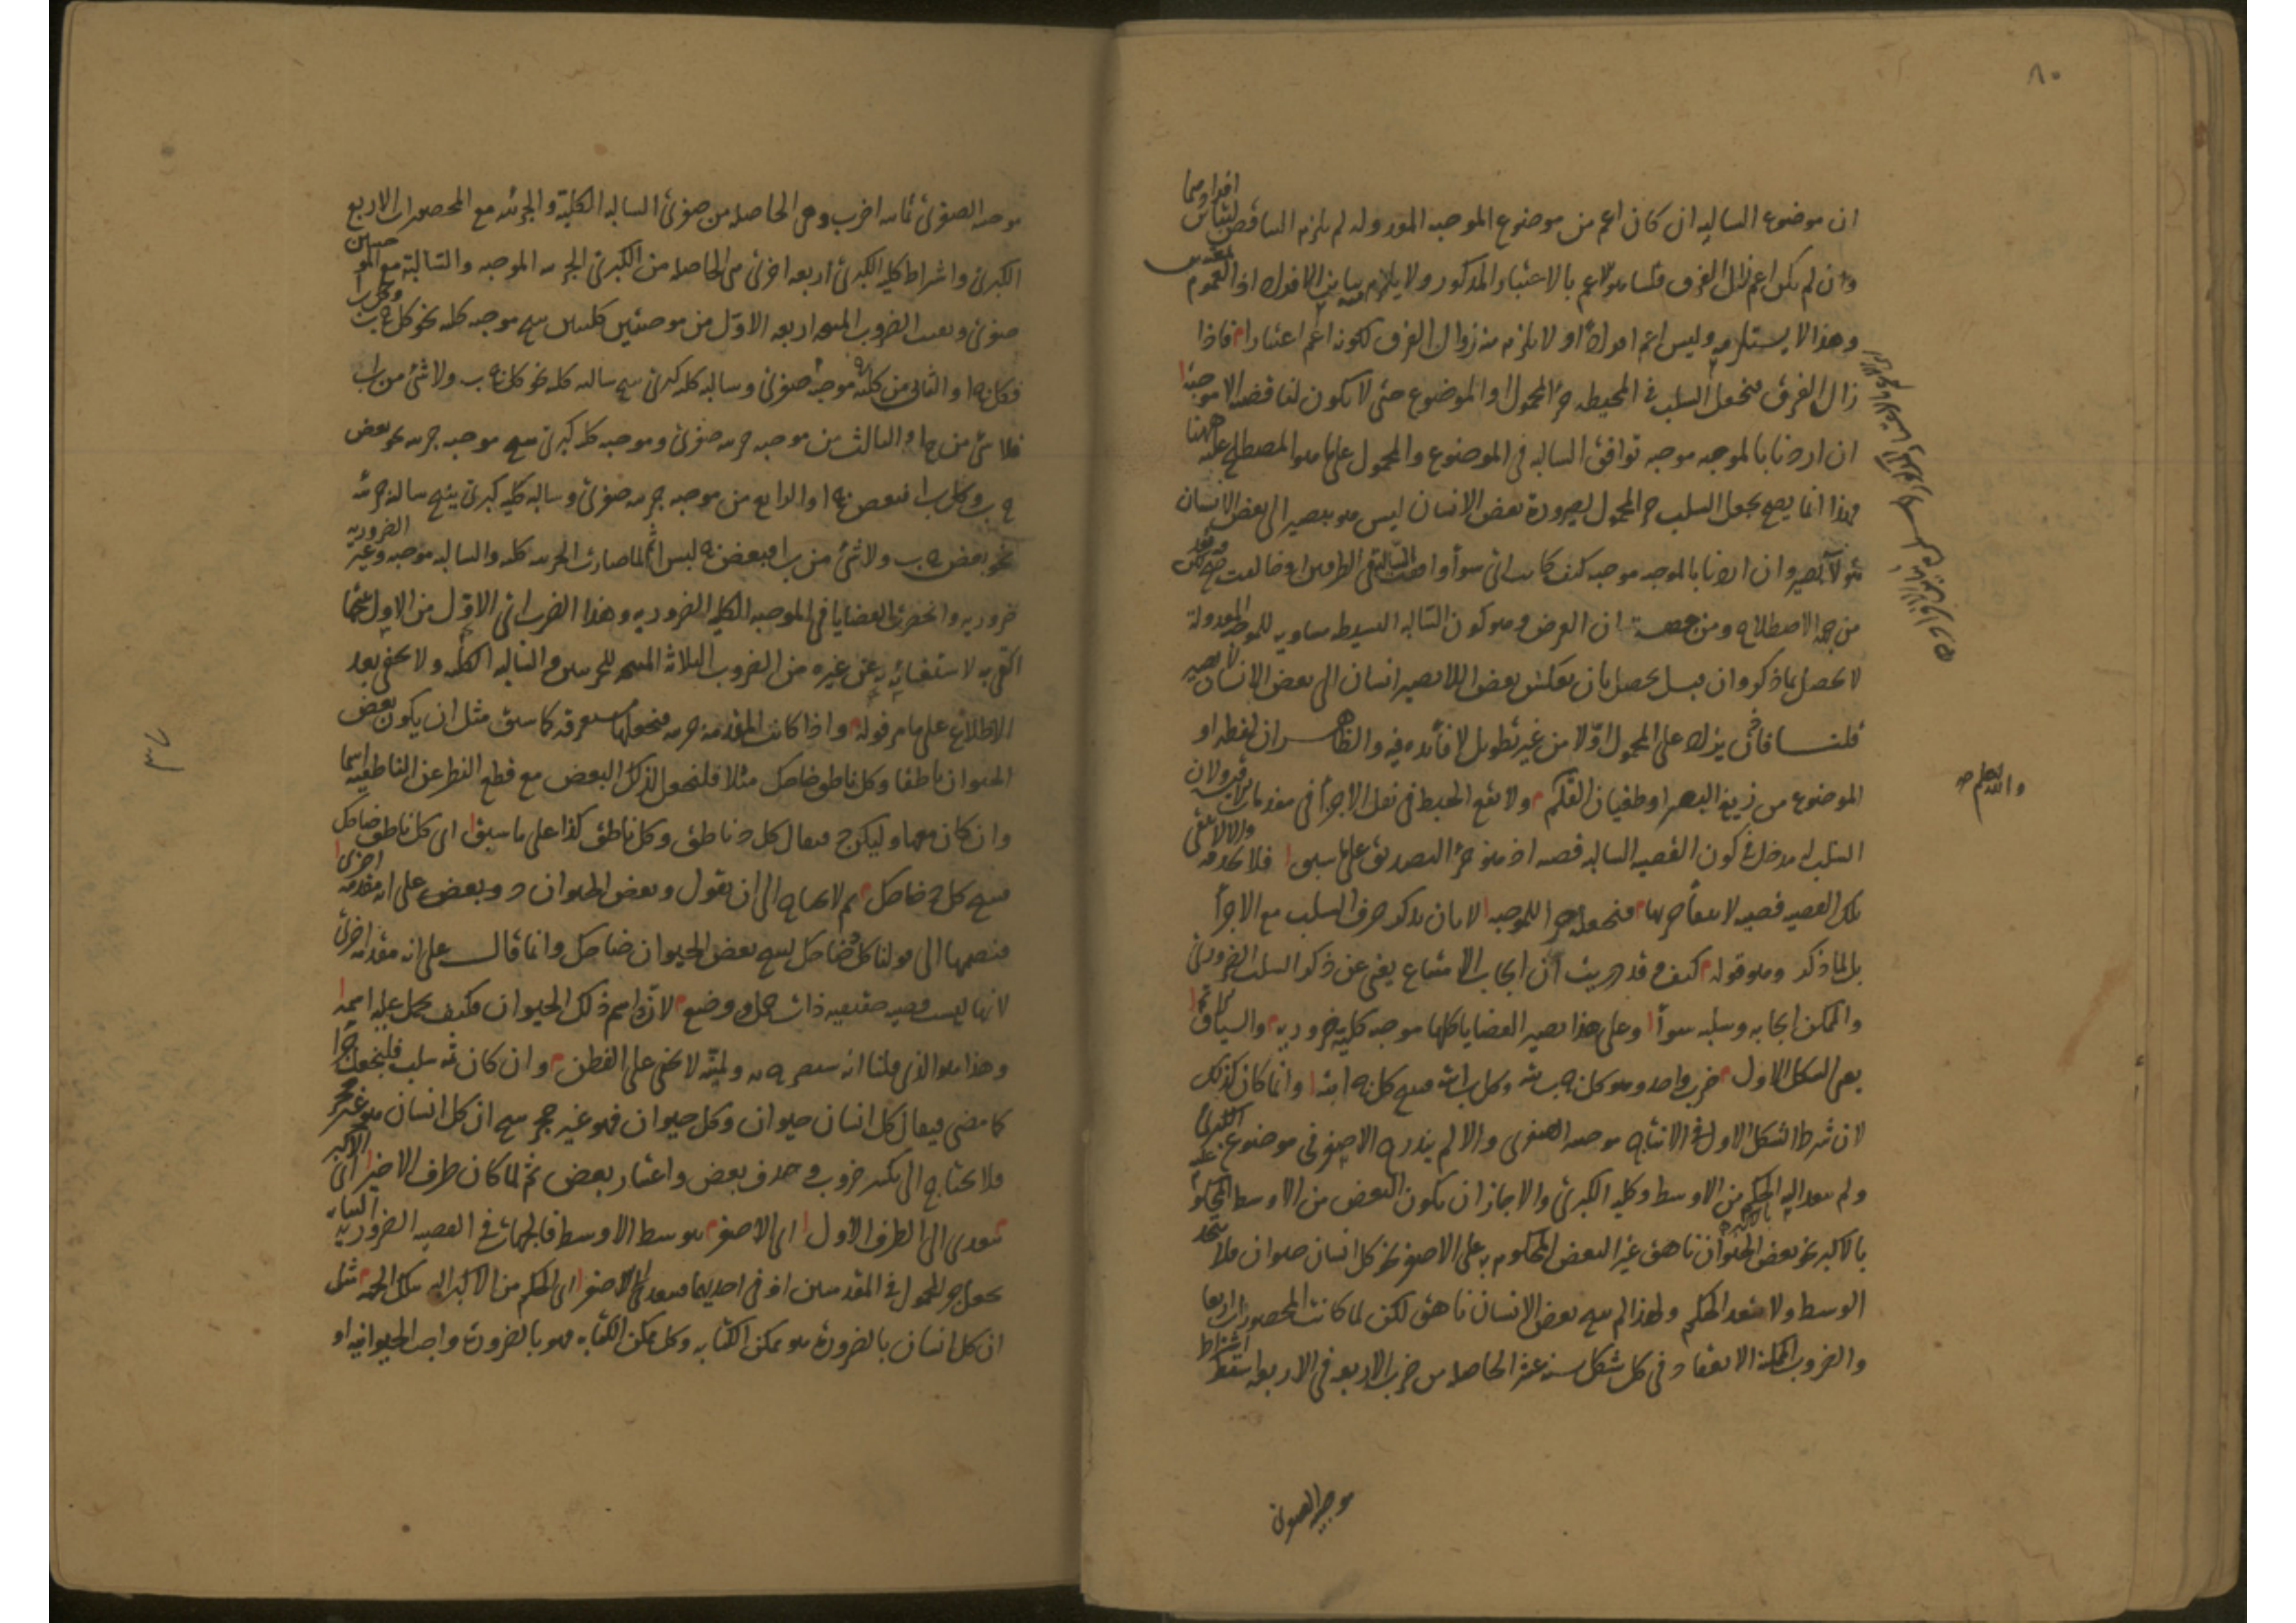 ٨٠
ان موضوع السالبه ان كان اعم من موضوع الموجبه المعدوله لم يلزم التناقض لتباين افرادهما
وان لم يكن اعم زال الفرق قلنا هو اعم بالاعتبار المذكور ولا يلزم تباين الافراد اذ العموم
وهذا لا يستلزمه وليس اعم افرادا ولا يلزم منه زوال الفرق لكونه اعم اعتبارا فاذا
زال الفرق فنجعل السلب في المحيطه جزء المحمول او الموضوع حتى لا يكون لنا قضيه الا موجبه
ان اردنا بالموجبه موجبه توافق السالبه في الموضوع والمحمول على ما هو المصطلح عليه ههنا
فهذا انما يصح بجعل السلب جزء المحمول لصيرورة بعض الانسان ليس هو ببصير الى بعض الانسان
هو لا بصير وان اردنا بالموجبه موجبه كيف كانت اى سوا وافقت السالبه في الطرفين او خالفت
من جهة الاصطلاح ومن جهة ان الغرض وهو كون السالبه البسيطه مساويه للموجبه المعدولة
لا يحصل بما ذكر وان قيل يحصل بان يعكس بعض اللا بصير انسان الى بعض الانسان لا بصير
قلنا فان يزاد على المحمول اولا من غير تطويل لا فائده فيه والظاهر ان لفظه او
الموضوع من زيغ البصر او طغيان القلم ولا يقع الخبط في نقل الاجزأ في مقدمات
السلب له مدخل في كون القضيه السالبه قضيه اذ هو جزء التصديق على ما سبق فلا
تلك القضيه قضيه لانتفاء جزئها فنجعله جزءا للموجبه الا بان يذكر حرف السلب مع الاجزأ
بل لما ذكر وهو قوله كيف وقد دريت ان ايجاب الامتناع يغنى عن ذكر السلب الضرورى
والممكن ايجابه وسلبه سوآ وعلى هذا يصير القضايا كلها موجبه كليه ضروريه والسياق
يعنى الشكل الاول ضرب واحد وهو كل ج ب بته وكل ب ا بته فينتج كل ج ا بته وانما كان كذلك
لان شرط الشكل الاول في الانتاج موجبه الصغرى والا لم يندرج الاصغر فى موضوع الكبرى
ولم يتعد اليه الحكم من الاوسط وكليه الكبرى والا جاز ان يكون البعض من الاوسط المحكوم عليه
بالاكبر نحو بعض الحيوان ناهق غير البعض المحكوم به على الاصغر نحو كل انسان حيوان فلا يتحد
الوسط ولا يتعد الحكم ولهذا لم ينتج بعض الانسان ناهق لكن لما كانت المحصورات اربعا
والضروب الممكنة الانعقاد فى كل شكل سته عشر الحاصله من ضرب الاربعه فى الاربعه اسقط اشتراط
موجبه الصغرى
والله اعلم
موجبه الصغرى ثمانيه اضرب وهى الحاصله من صغرى السالبه الكلية والجزئيه مع المحصورات الاربع
الكبرى واشتراط كليه الكبرى اربعه اخرى هى الحاصله من الكبرى الجزئيه الموجبه والسالبة مع الموجبتين
صغرى وبقيت الضروب المنتجه اربعه الاول من موجبتين كليتين ينتج موجبه كليه نحو كل ج ب وكل ب ا
فكل ج ا والثانى من كليه موجبه صغرى وسالبه كليه كبرى ينتج سالبه كليه نحو كل ج ب ولا شئ من ب ا
فلا شئ من ج ا والثالث من موجبه جزئيه صغرى وموجبه كليه كبرى ينتج موجبه جزئيه نحو بعض
ج ب وكل ب ا فبعض ج ا والرابع من موجبه جزئيه صغرى وسالبه كليه كبرى ينتج سالبه جزئيه
نحو بعض ج ب ولا شئ من ب ا فبعض ج ليس ا ثم لما صارت الجزئيه كليه والسالبه موجبه وغير الضروريه
ضروريه وانحصرت القضايا فى الموجبه الكليه الضروريه وهذا الضرب اى الاول من الاول ينتجها
اكتفى به لاستغنائه به عن غيره من الضروب الثلاثه المنتجه للجزئيتين والسالبه الكليه ولا يخفى بعد
الاطلاع على ما مر قوله واذا كانت المقدمه جزئيه فنجعلها مستغرقه كما سبق مثل ان يكون بعض
الحيوان ناطقا وكل ناطق ضاحك مثلا فلنجعل لذلك البعض مع قطع النظر عن الناطقيه اسما
وان كان معها وليكن د فيقال كل د ناطق وكل ناطق كذا على ما سبق اى كل ناطق ضاحك
فينتج كل د ضاحك ثم لا يحتاج الى ان نقول وبعض الحيوان د وبعض على انه مقدمه اخرى
فنضمها الى قولنا كل د ضاحك لينتج بعض الحيوان ضاحك وانما قال على انه مقدمه اخرى
لانها ليست قضيه حقيقيه ذات حمل ووضع لان د اسم ذلك الحيوان فكيف يحمل عليه اسمه
وهذا هو الذى قلنا انه سيصرح به ولميته لا تخفى على الفطن وان كان ثمه سلب فلنجعل جزءا
كما مضى فيقال كل انسان حيوان وكل حيوان فهو غير حجر ينتج ان كل انسان هو غير حجر
فلا يحتاج الى تكثير ضروب وحذف بعض واعتبار بعض ثم لما كان طرف الاخير اى الاكبر
يتعدى الى الطرف الاول اى الاصغر بتوسط الاوسط فالجهات في القضيه الضروريه البتاته
نجعل جزء المحمول فى المقدمتين او فى احديهما فيتعدى الى الاصغر اى الحكم من الاكبر اليه بتلك الجهه مثل
ان كل انسان بالضرورة هو ممكن الكتابه وكل ممكن الكتابه فهو بالضرورة واجب الحيوانيه او